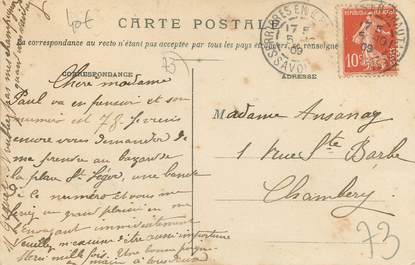 40€
CARTE POSTALE
La correspondance au recto n'étant pas acceptée par tous les pays étrangers, se renseigner
CORRESPONDANCE
ADRESSE
73
10c
Chère madame
Paul va en pension et son
numéro est 78. je viens
encore vous demander de
me prendre au bazar de
la place St Léger, une bande
ce numéro et vous me
ferez un grand plaisir en me
l'envoyant immédiatement
Veuillez m'excuser d'être aussi importune
Merci mille fois. Une bonne poignée
de main à tous deux
Madame Ansanay
1 rue Ste Barbe
Chambéry
73